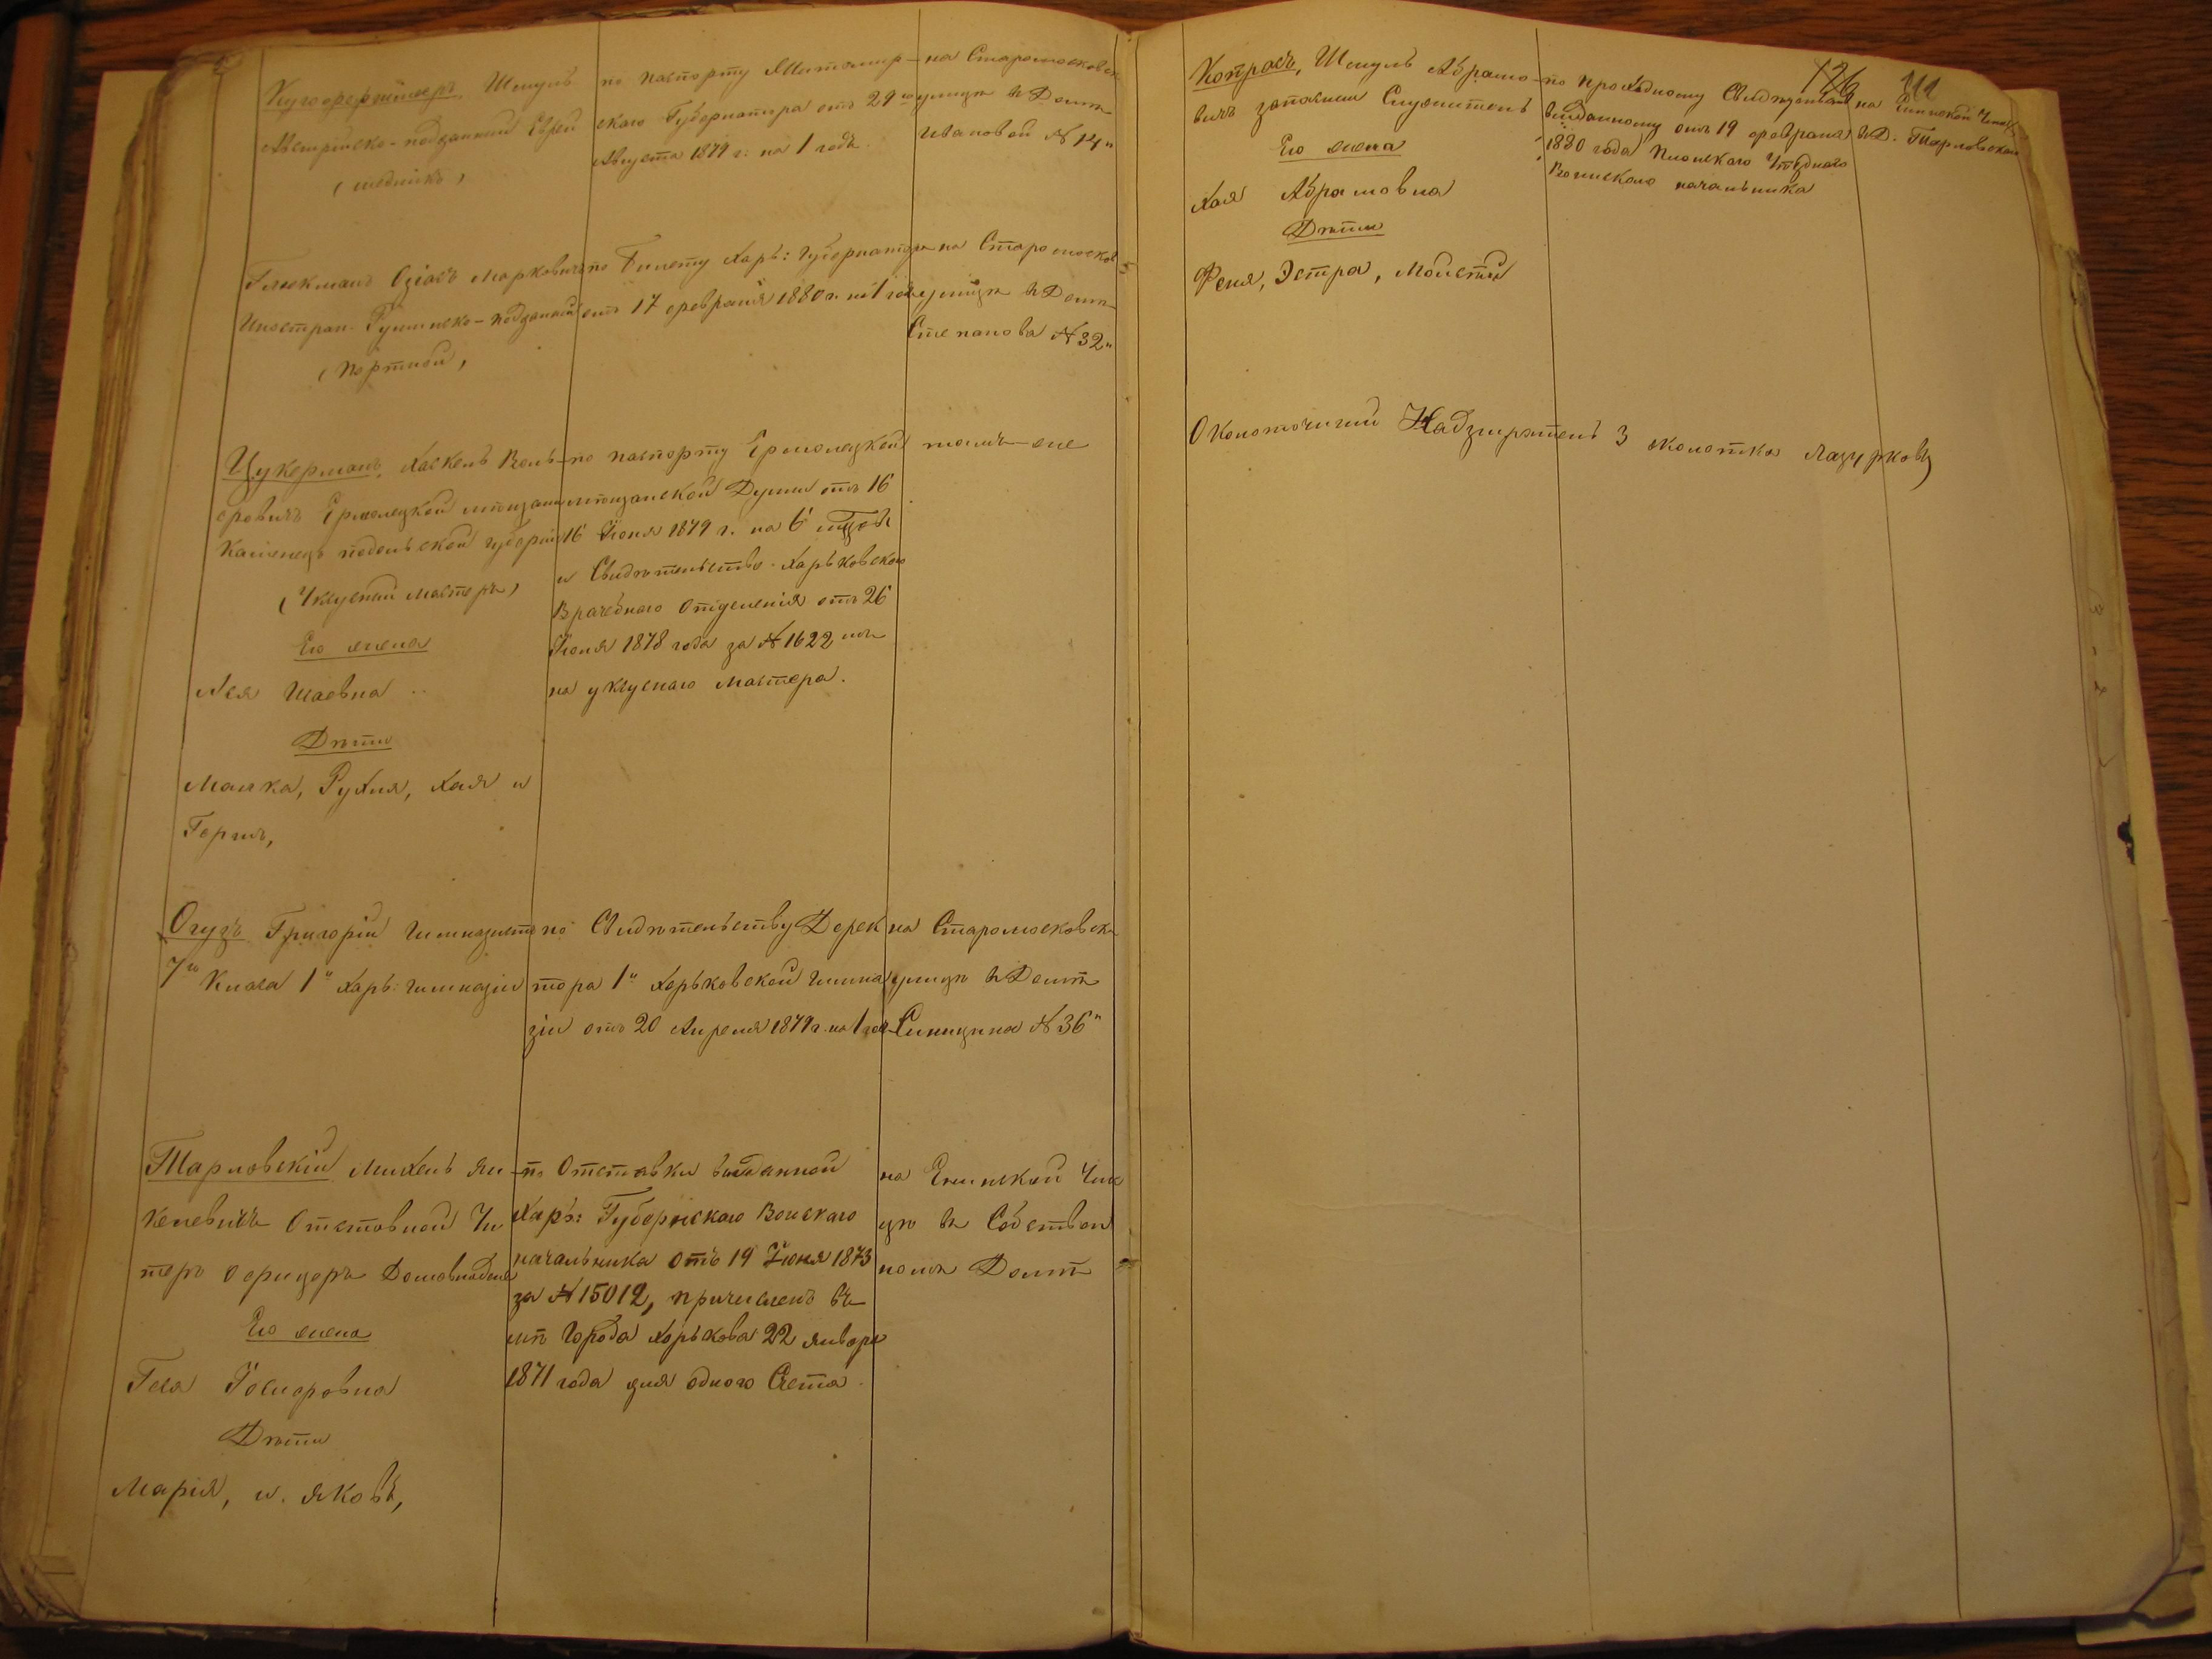 Шмуль
Австрійско-подданный Еврей
(медникъ)
по паспорту Житомир-
скаго Губернатора отъ 29го
Августа 1879 г: на 1 годъ.
на Старомосковск
улицѣ въ Домѣ
Ивановой № 14"
Глюкманъ Озіасъ Марковичъ
Иностран. Румынско-подданный
(портной)
по билету Харь: Губернатора
отъ 17 февраля 1880 г. на 1 годъ
на Старомосков
улицѣ въ Домѣ
Степанова № 32"
Цукерманъ, Хаскель Воль-
фовичъ Ермолецкой мѣщанин
Каменецъ подольской губерніи
(Уксусный мастеръ)
Его жена
Лея Шаевна
Дѣти
Малка, Рухля, Хая и
Гершъ,
по паспорту Ермолецкой
мѣщанской Думы отъ 16
16 Іюня 1879 г. на 6 мцовъ
и Свидѣтельство Харьковского
Врачебнаго Отдѣленія отъ 26
Іюня 1878 года за № 1622мъ
на уксуснаго мастера.
тамъ-же
Огузъ Григорій гимназистъ
7го Класа 1й Харь: гимназіи
по Свидѣтельству Дерек
тора 1й Харьковской гимна
зіи отъ 20 Апреля 1879 г. на 1 годъ
на Старомосковск
улицѣ въ Домѣ
Синицина № 36"
Тарловскій Михель Ян-
келевичъ Отставной Ун
теръ Офицеръ Домовладел
Его жена
Геся Іосифовна
Дѣти
Марія, и Яковъ,
по Отставки выданной
Харь: Губернскаго Воинскаго
начальника отъ 19 Іюня 1873
за № 15012, причисленъ въ
мѣ города Харькова 22 января
1871 года для одного Счета.
на Ениской Ули
цѣ въ Собствен
номъ Домѣ
126 111
Копрасъ, Шмуль Абрамо-
вичъ запасный Служитель
Его жена
Хая Абрамовна
Дѣти
Феня, Эстра, Моисѣй
по проходному Свидѣтельству
выданному отъ 19 февраля
1880 года Уѣзднаго
Воинскаго начальника
на Ениской
въ Д. Тарловскаго
Околоточный Надзиратель 3 околотка Мазурковъ